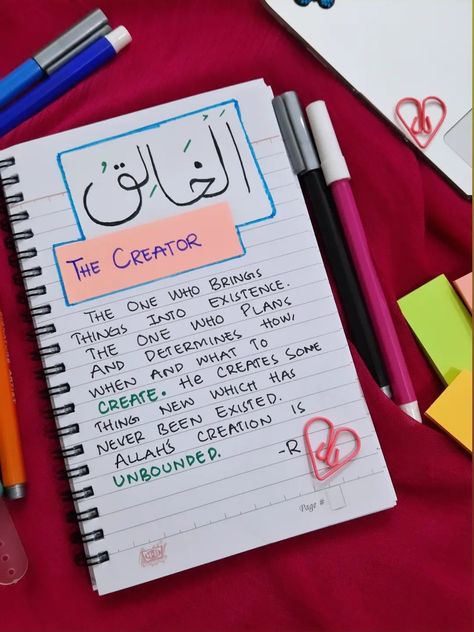 اَلْخَالِقُ
THE CREATOR
THE ONE WHO BRINGS
THINGS INTO EXISTENCE.
THE ONE WHO PLANS
AND DETERMINES HOW,
WHEN AND WHAT TO
CREATE. HE CREATES SOME
THING NEW WHICH HAS
NEVER BEEN EXISTED.
ALLAH'S CREATION IS
UNBOUNDED. -R
Page #